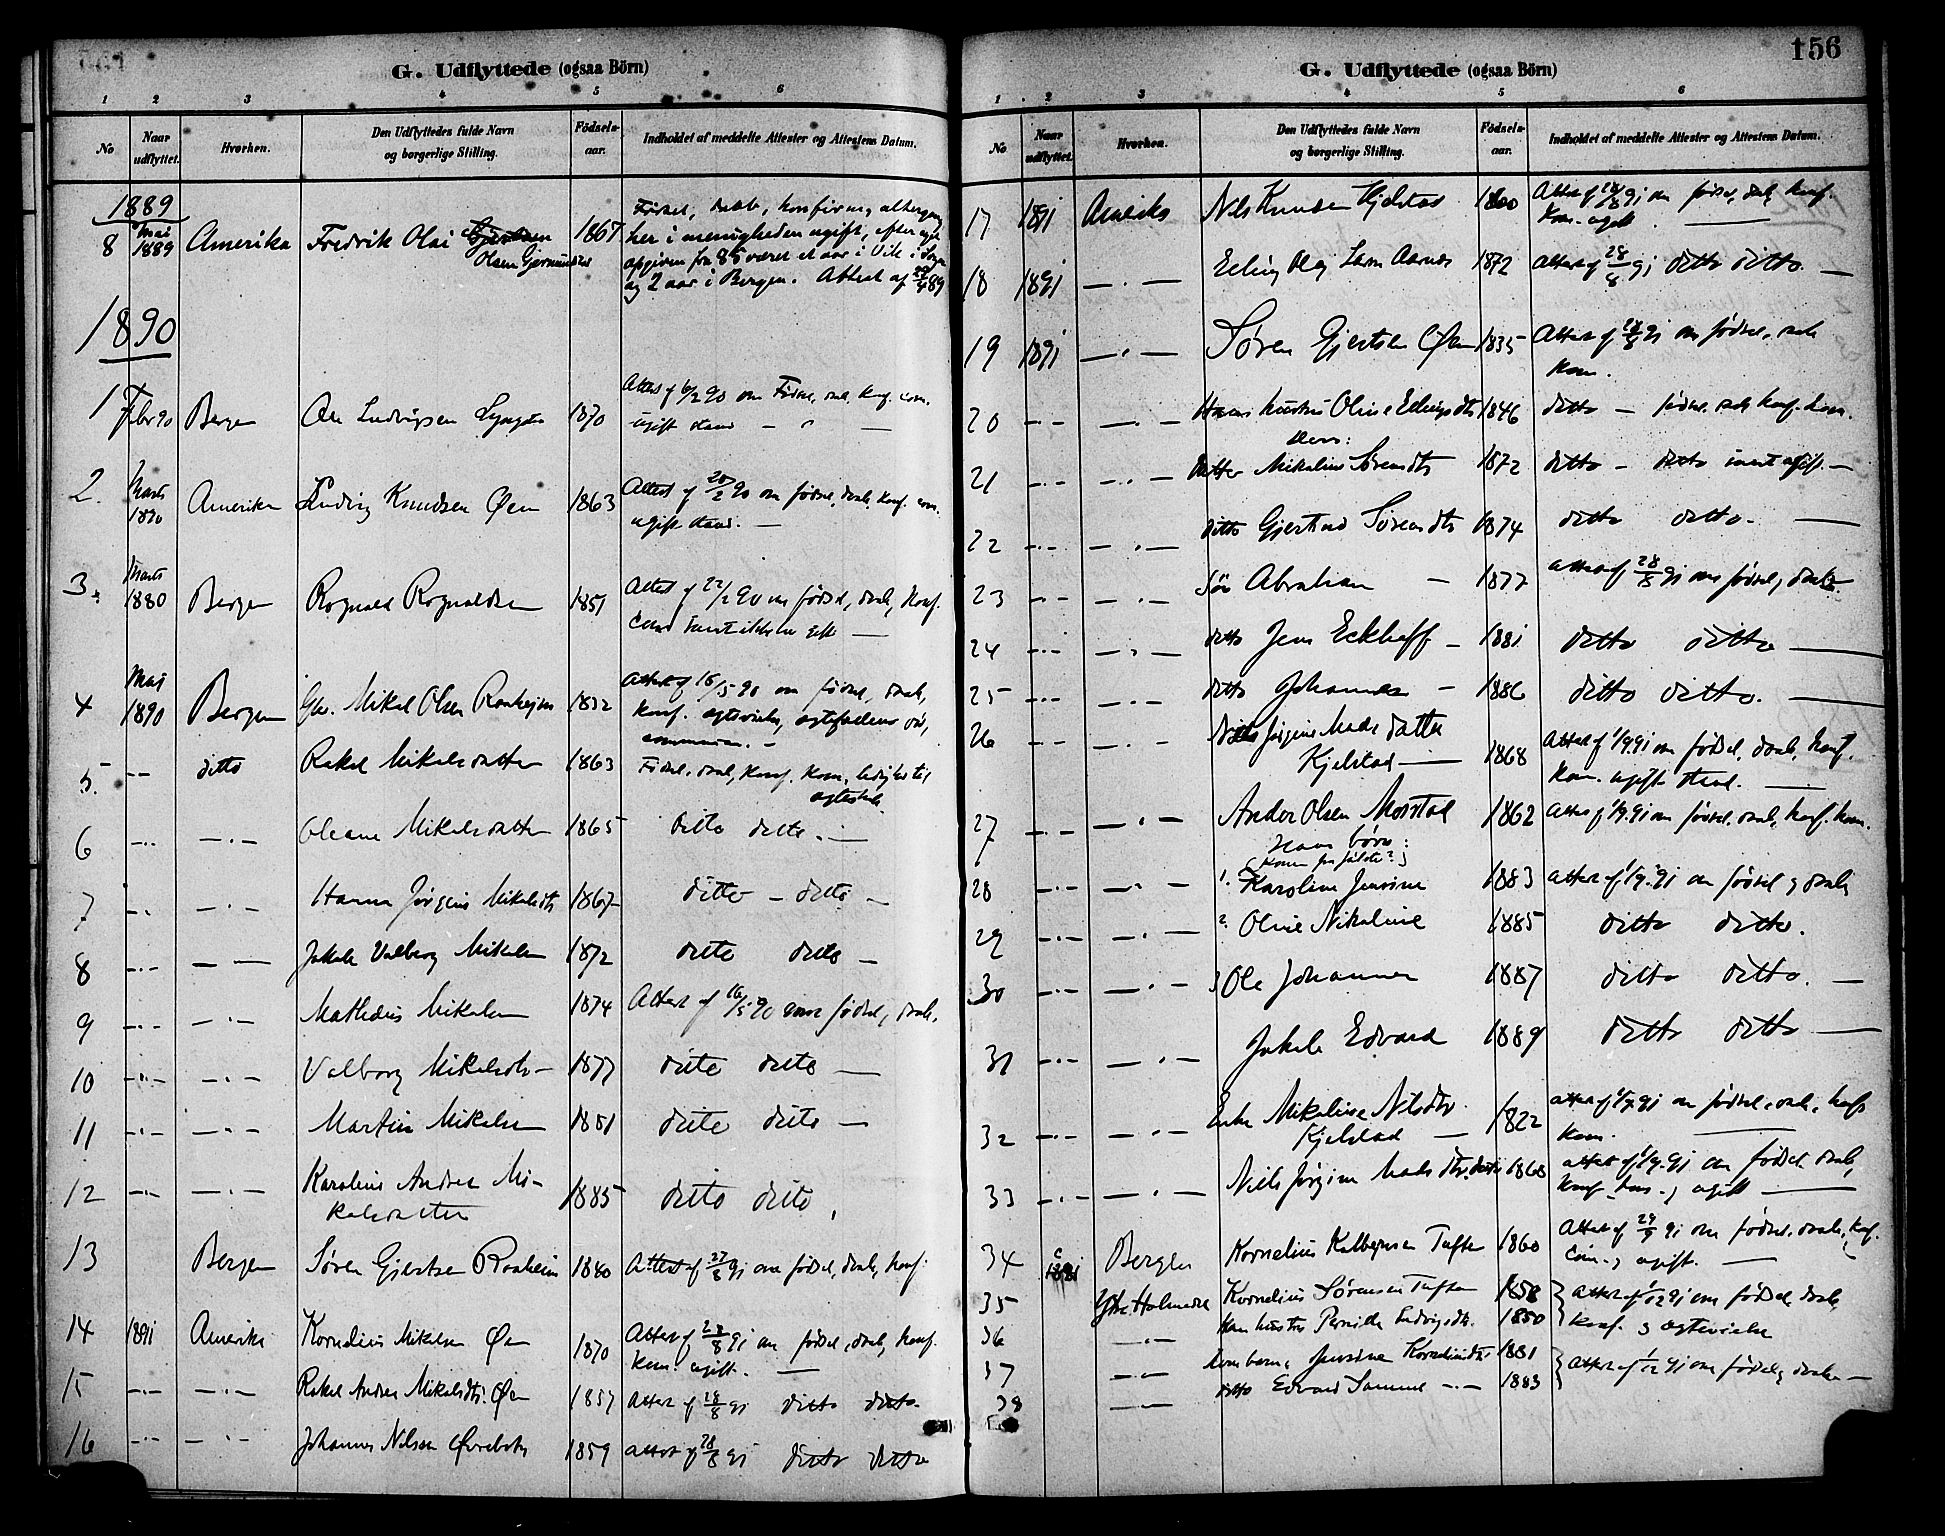 G. Udflyttede (ogsaa Börn)
1 2 3 4 5 6
No Naar udflyttet. Hvorhen. Den Udflyttedes fulde Navn og borgerlige Stilling. Fødselsaar. Indholdet af meddelte Attester og Attestens Datum.
1889
8 Mai 1889 Amerika Fredrik Olai Olsen 1867 Fødsel, daab, konfirm, altergang
her i menigheden ugift, efter
opgiven fra 85 været et aar i Vik i Sogn
og 2 aar i Bergen. Attest af 89
1890
1 Febr 90 Bergen Ole Ludvigsen 1870 Attest af 6/2 90 om Fødsel, daab, konf. com.
ugift stand — " —
2. Marts 1890 Amerika Ludvig Knudsen Øen 1863 Attest af 20/2 90 om fødsel, daab, konf. com.
ugift stand. —
3. Marts 1880 Bergen Rognald Rognaldsen 1851 Attest af 22/2 90 om fødsel, daab, konf.
4 Mai 1890 Bergen Gbr. Mikel Olsen Ronhejm 1832 Attest af 16/5 90 om fødsel, daab,
konf. egtevielse,
5. -- ditto Rakel Mikelsdatter 1863 Fødsel, daab, konf. kom. ledighed til
egteskab
6 -.- — . — Oleane Mikelsdatter 1865 ditto ditto. —
7 -.- — . — Hanna Jørgine Mikelsdtr 1867 ditto – ditto –
8 -.- — — Jakob Valborg Mikelsen 1872 ditto ditto —
9 -.- — . — Mathias Mikelsen 1874 Attest af 16/5 90 om fødsel, daab.
10 -.- — . — Valborg Mikelsdtr — 1877 ditto ditto —
11 -.- — . — Martin Mikelsen 1881 ditto ditto —
12 -.- — . — Karoline Andrea Mi-
kelsdatter 1885 ditto ditto,
13 Bergen Søren Gjertsen Ronheim 1840 Attest af 27/8 91 om fødsel, daab, konf.
14 1891 Amerika Kornelius Mikelsen Øen 1870 Attest af 28/8 91 om fødsel, daab, konf.
kom. ugift. —
15 -.- — . — Rakel Andrea Mikelsdtr. Øen 1857 Attest af 28/8 91 ditto ditto.
16 -.- — . — Johannes Nilsen 1859 attest af 28/8 91 ditto ditto
156
G. Udflyttede (ogsaa Börn)
1 2 3 4 5 6
No Naar udflyttet. Hvorhen. Den Udflyttedes fulde Navn og borgerlige Stilling. Fødselsaar. Indholdet af meddelte Attester og Attestens Datum.
17 1891 Amerika Nils Knudsen Kjelstad Attest af 28/8 91 om fødsel, daab, konf.
Kom. ugift —
18 1891 — . — Erling Olaj Larsen Aarnes 1872 Attest af 28/8 91 ditto ditto. —
19 1891 — . — Søren Gjertsen Øen 1835 Attest af 28/8 91 om fødsel, daab
Kom.
20 -.- — . — Hans hustru Oline Erlingsdtr 1846 ditto — fødsel, daab konf. kom.
Deres:
21 -.- — . — Datter Mikeline Sørensdtr 1872 ditto – ditto samt ugift. —
22 -.- — . — ditto Gjertine Sørensdtr 1874 ditto ditto. —
23 -.- — . — Søn Abraham — 1877 attest af 28/8 91 om fødsel, daab
24 -.- — . — ditto Jens Eckhoff — 1881 ditto ditto —
25 -.- — . — ditto Johannes — 1886 ditto ditto. —
26 -.- — . — Nils Jørgine Madsdatter
Kjelstad — 1868 Attest af 1/9.91 om fødsel, daab, konf.
Kom. ugift stand. —
27 -.- — . — Anders Olsen 1862 Attest af 1/9.91 om fødsel, daab, konf. kom.
Hans børn:
28 -.- — . — 1. Karoline Jensine 1883 attest af 1/9.91 om fødsel, daab
29 -.- — . — 2 Oline Nikoline 1885 ditto ditto.
30 -.- — . — 3 Ole Johannes 1887 ditto ditto. —
31 -.- — . — Jakob Edvard 1889 ditto ditto —
32 -.- — . — Enke Mikeline Nilsdtr
Kjelstad — 1822 attest af 1/9.91 om fødsel, daab, konf
kom. —
33 -.- — . — Niels Jørgine Madsdtr. 1868 attest af 1/9.91 om fødsel, daab,
konf. kom. ugift —
34 1891 Bergen Kornelius Tuften 1860 Attest af 29/9 91 om fødsel, daab, konf.
Com., ugift. —
35 Ytre Holmedal Kornelius Sørensen Tuften 1858 attest af 1/12 91 om fødsel, daab,
36 — . — Hans hustru Pernille Ludvigsdtr. 1850 konf. & egtevielse
37 — . — deres barn, Jensine Kornelinsdtr 1881 attest af 1/12 91 om fødsel, daab —
38 — . — ditto Edvard Samuel -.- 1883